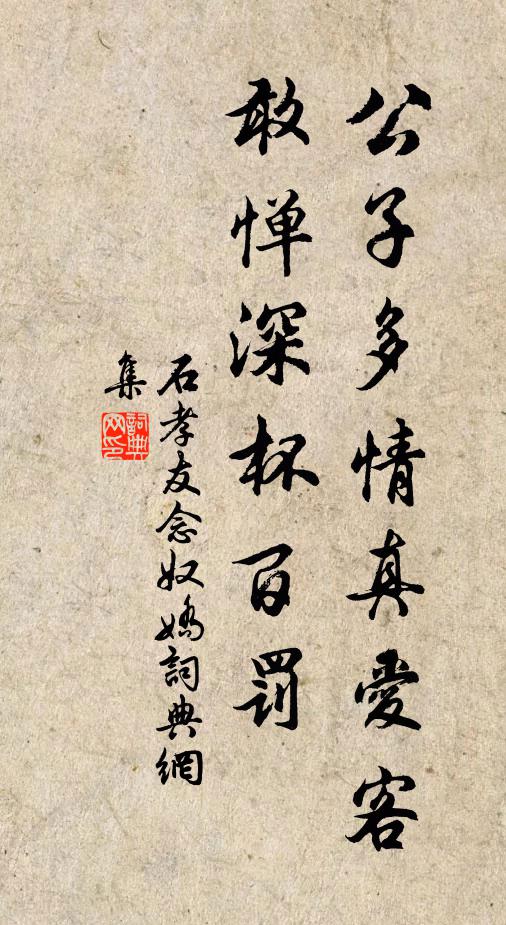 公子多情真愛客
敢惮深杯百罰
石孝友念奴嬌詞典網
集
詞典网印